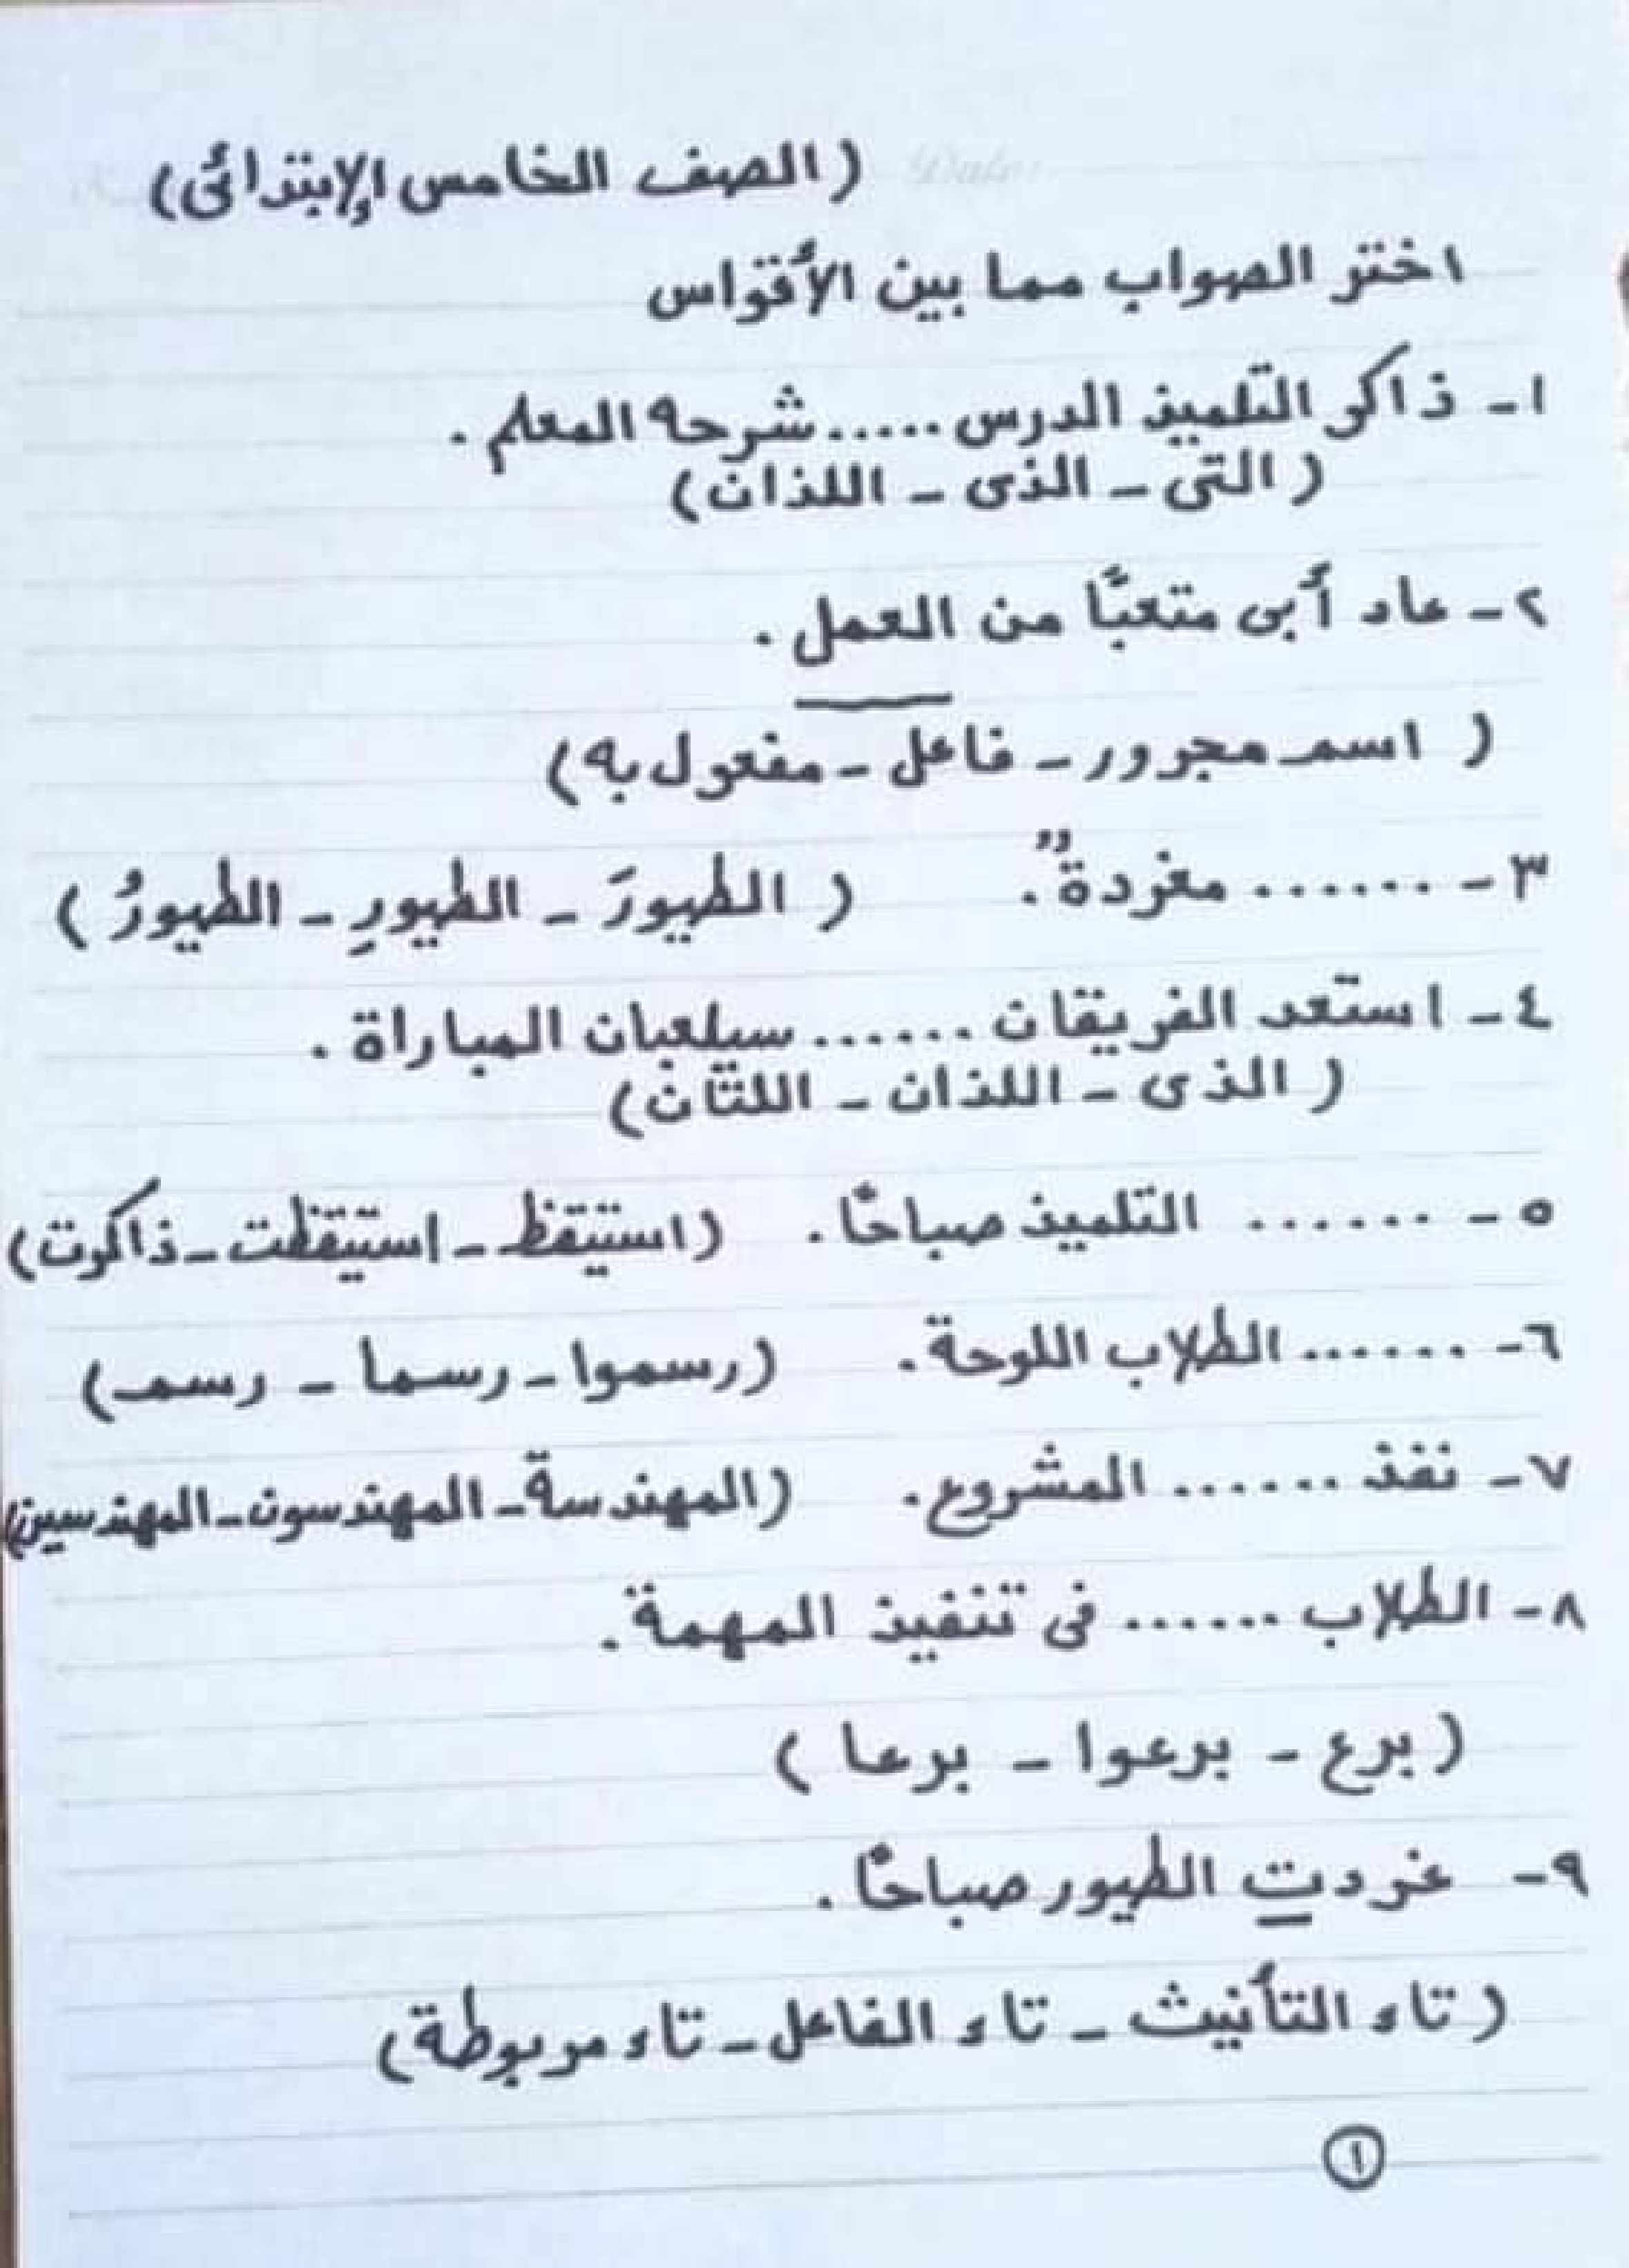 (الصف الخامس الإبتدائى)
اختر الصواب مما بين الأقواس
١- ذاكر التلميذ الدرس ..... شرحه المعلم .
( التى - الذى - اللذان)
٢- عاد أبى متعبًا من العمل .
( اسم مجرور - فاعل - مفعول به)
٣- ...... مغردةٌ. ( الطيورَ - الطيورِ - الطيورُ )
٤- استعد الفريقان ...... سيلعبان المباراة .
( الذى - اللذان - اللتان)
٥- ...... التلميذ صباحًا. (استيقظ - استيقظت - ذاكرت)
٦- ...... الطلاب اللوحة. (رسموا - رسما - رسم)
٧- نفذ ...... المشروع. (المهندسة - المهندسون - المهندسين)
٨- الطلاب ...... فى تنفيذ المهمة.
( برع - برعوا - برعا )
٩- غردت الطيور صباحًا.
( تاء التأنيث - تاء الفاعل - تاء مربوطة)
١